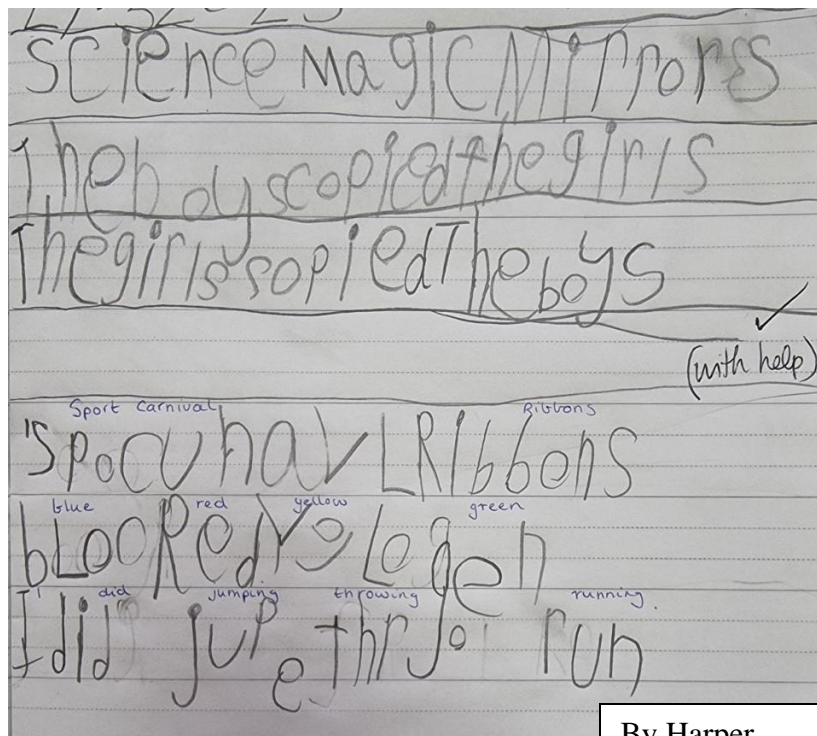 science MagicMirrors
Theboyscopiedthegirls
ThegirlssopiedTheboys
✓
(with help)
Sport Carnival Ribbons
SpocunavLRibbons
blue red yellow green
bLooRedyoLogen
I did jumping throwing running.
Idid jupe thrJo run
By Harper